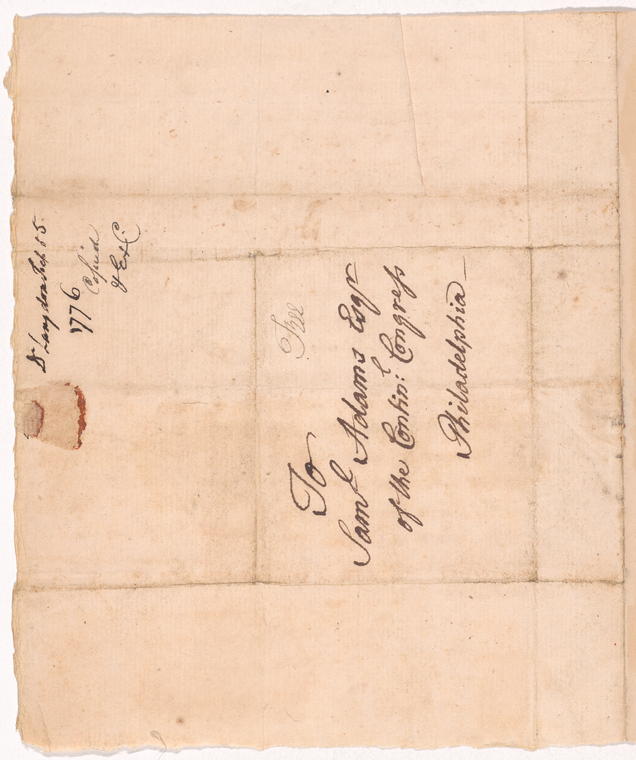 Free
To
Saml Adams Esqr
of the Contin:l Congress
Philadelphia
Dr Langdon Feb
1776
Copied
& Ex.C.